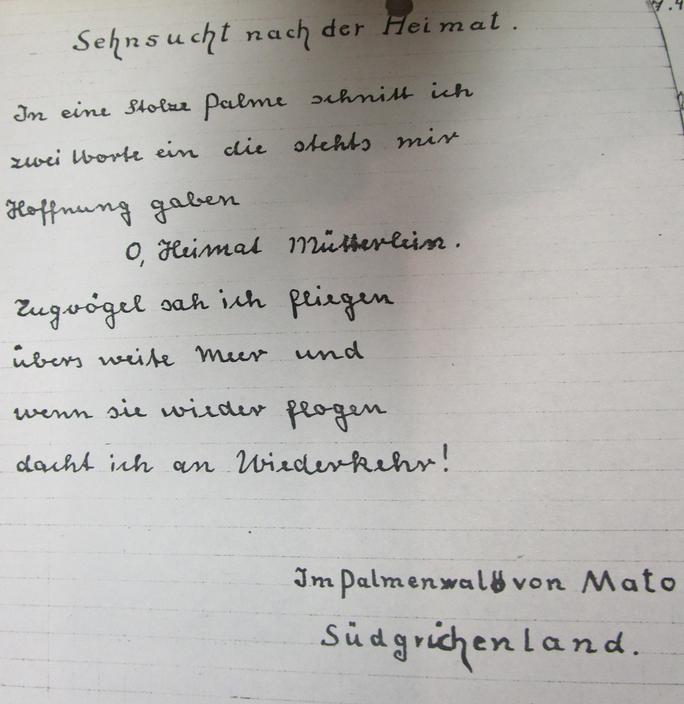 Sehnsucht nach der Heimat.
In eine Stolze Palme schnitt ich
zwei Worte ein die stehts mir
Hoffnung gaben
O, Heimat Mütterlein.
Zugvögel sah ich fliegen
übers weite Meer und
wenn sie wieder flogen
dacht ich an Wiederkehr!
Im Palmenwald von Mato
Südgrichenland.